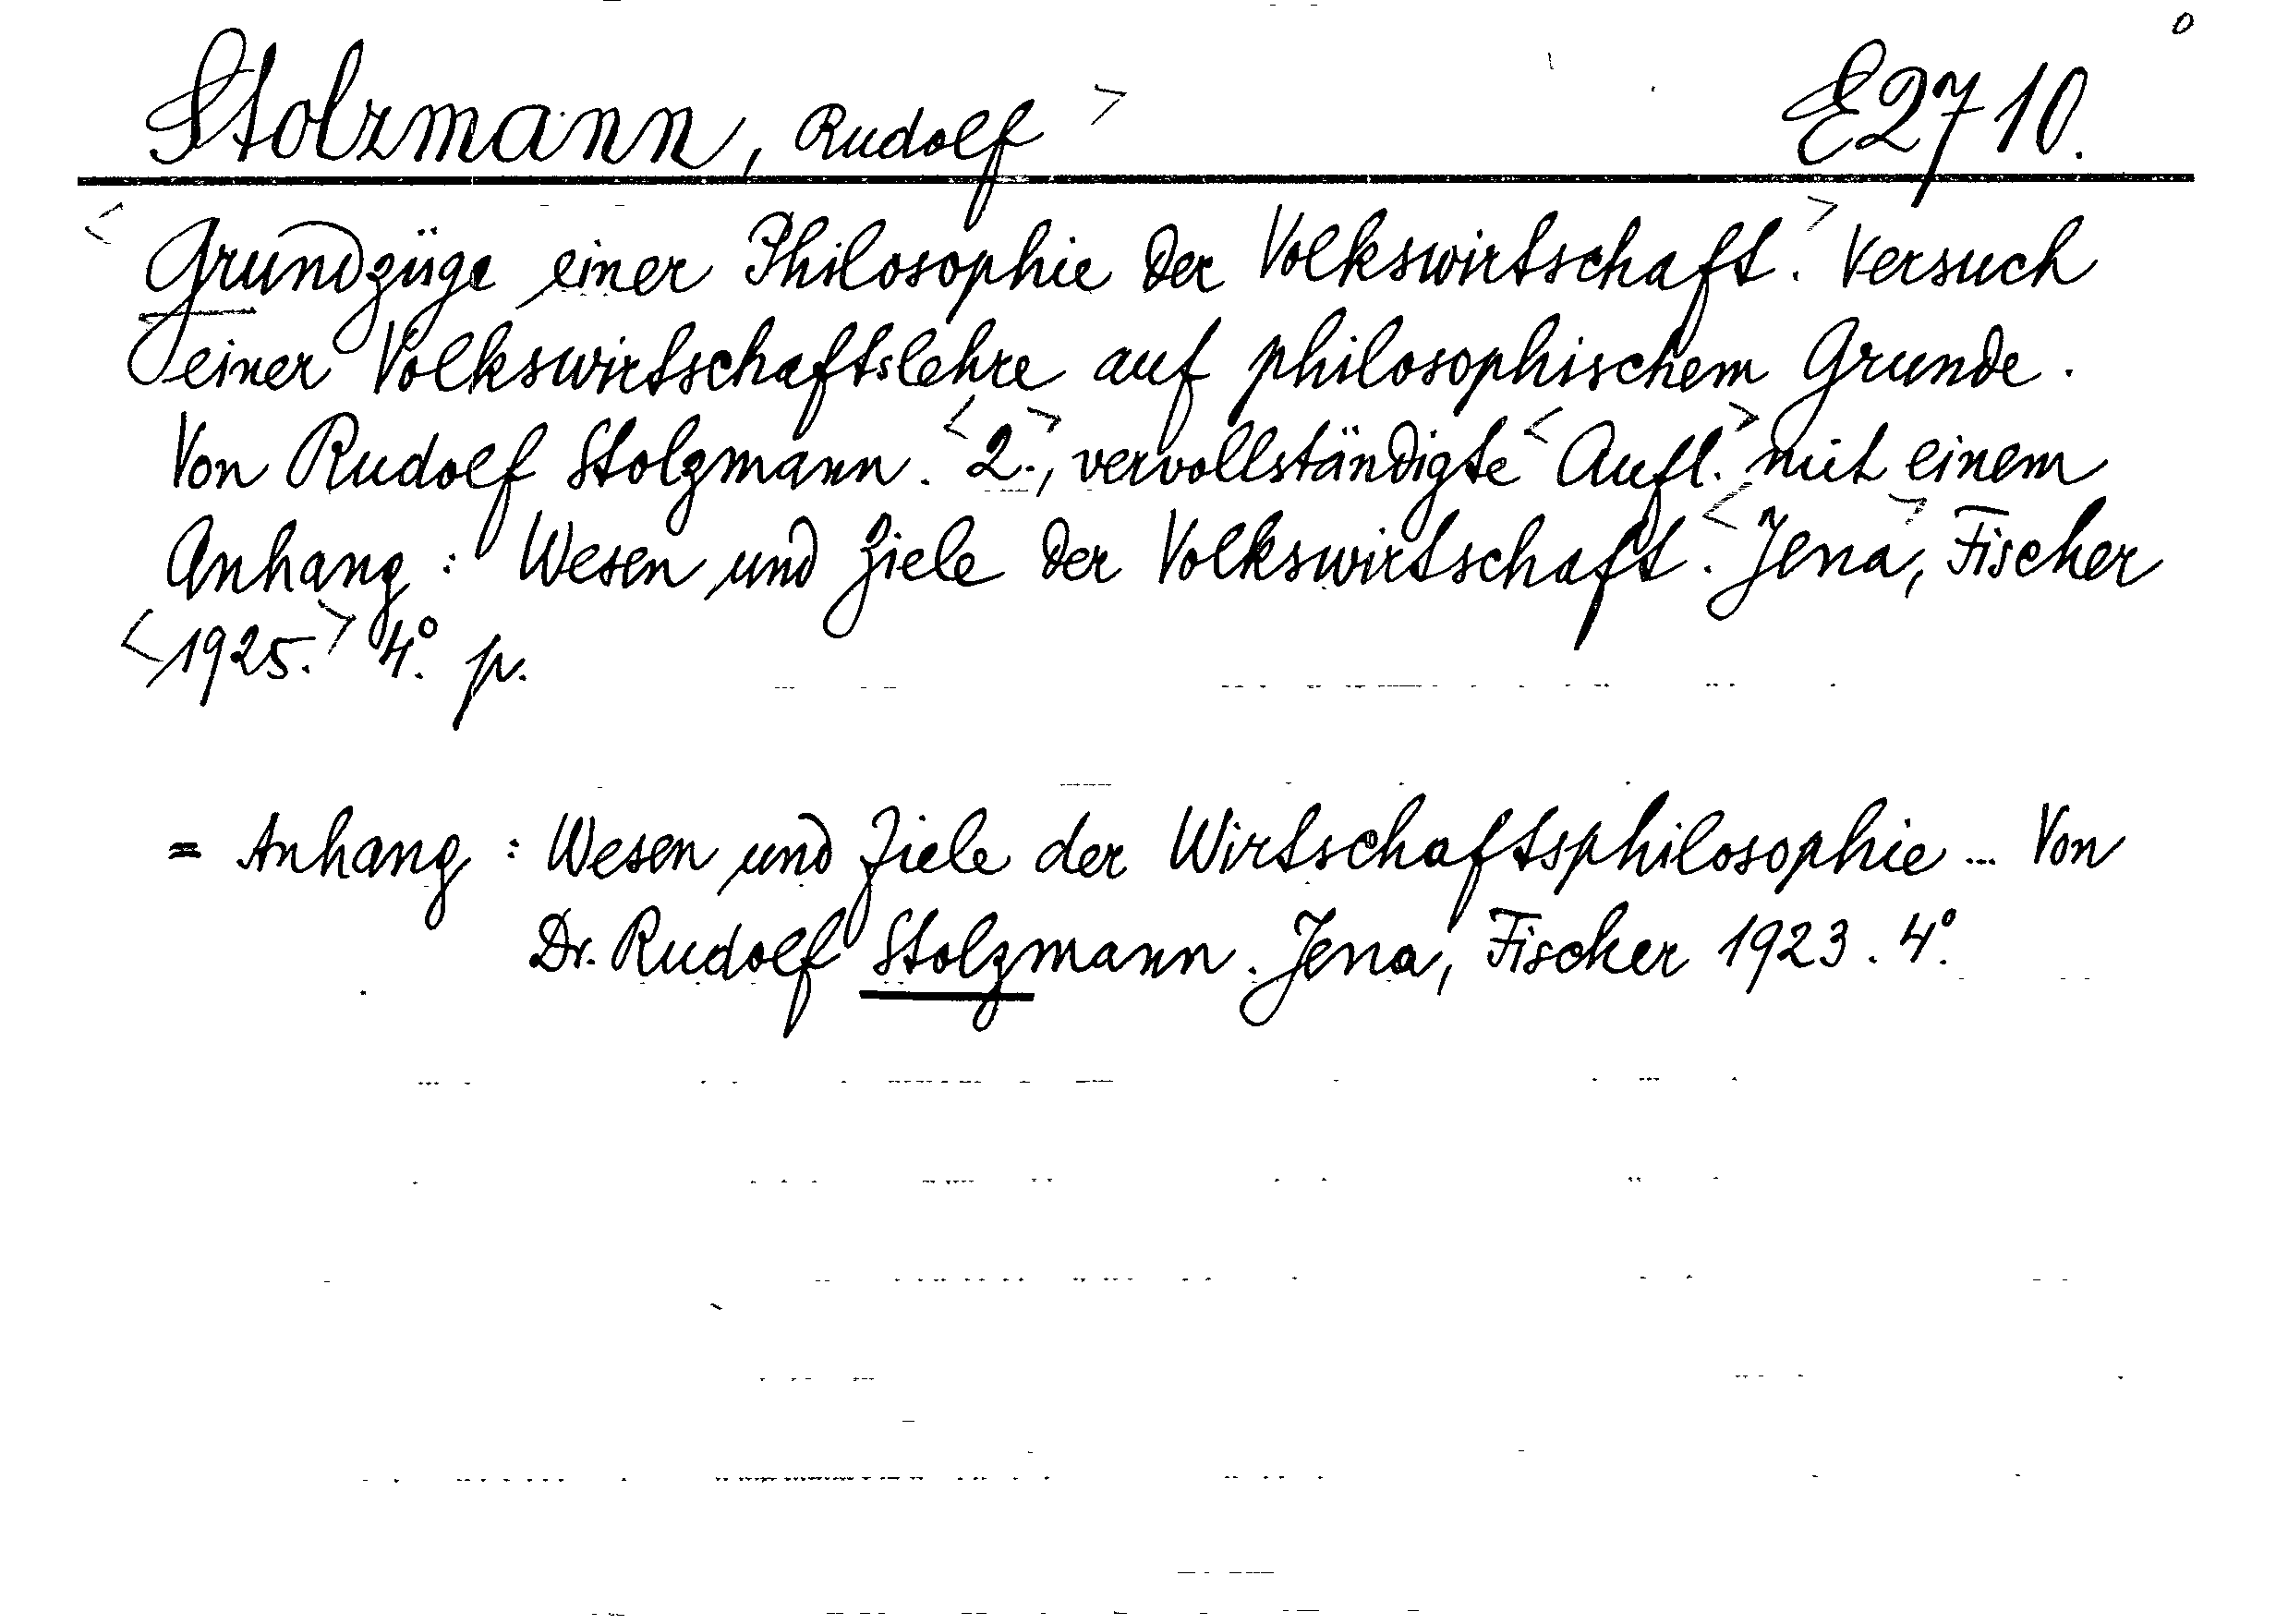 Stolzmann, Rudolf > E2710.
<Grundzüge einer Philosophie der Volkswirtschaft.> Versuch
einer Volkswirtschaftslehre auf philosophischem Grunde.
Von Rudolf Stolzmann. <2.>, vervollständigte <Aufl.> mit einem
Anhang: Wesen und Ziele der Volkswirtschaft. <Jena>, Fischer
<1925.> 4°. p.
= Anhang: Wesen und Ziele der Wirtschaftsphilosophie ... Von
Dr. Rudolf Stolzmann. Jena, Fischer 1923. 4°.